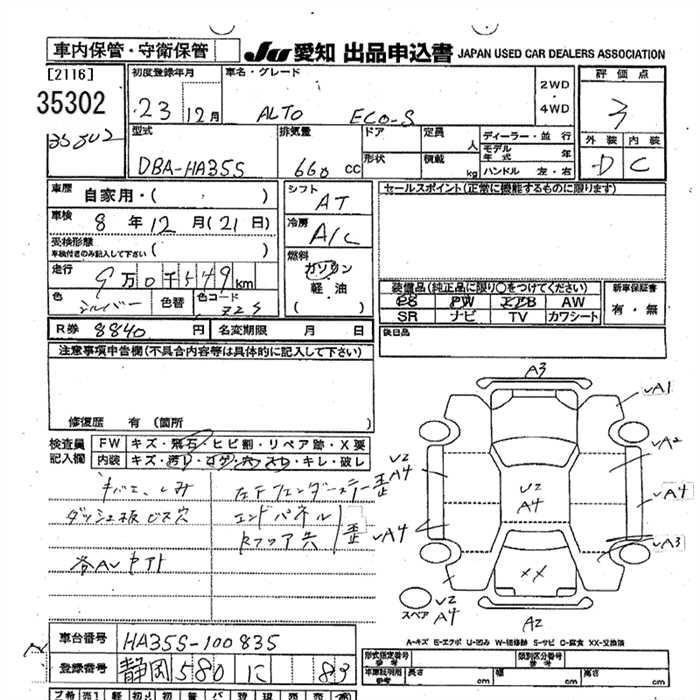 車内保管・守衛保管
JU 愛知 出品申込書 JAPAN USED CAR DEALERS ASSOCIATION
[2116]
35302
35302
初度登録年月
23 12月
車名・グレード
ALTO ECO-S
2WD
・
4WD
評価点
3
外装 内装
D C
型式
DBA-HA35S
排気量
660 cc
ドア
形状
定員
人
積載
kg
ディーラー・並行
モデル年式 年
ハンドル 左・右
車歴
自家用・( )
車検
8年12月(21日)
受検形態
車検付きのみ記入して下さい
( )
走行
9万0千549km
色
シルバー
色替
色コード
Z2S
シフト
AT
冷房
A/C
燃料
ガソリン
・
軽・油
( )
セールスポイント(正常に機能するものに限ります)
装備品(純正品に限り○をつけてください)
PS PW エアB AW
SR ナビ TV カワシート
新車保証書
有・無
後日品
R券 8840 円
名変期限 月 日
注意事項申告欄(不具合内容等は具体的に記入して下さい)
修復歴 有 (箇所 )
検査員
記入欄
FW キズ・飛石・ヒビ割・リペア跡・X要
内装 キズ・汚れ・コゲ・穴・スレ・キレ・破レ
シミ
ダッシュ板ビス穴
左フェンダーステー歪
エンドパネル
Rフロア共
歪
A3
A1
A2
A4
A3
U2
A4
U2
A4
A4
XX
スペア
U2
A4
A2
A-キズ E-エクボ U-凹み W-補修跡 S-サビ C-腐食 XX-交換済
車台番号
HA35S-100835
登録番号
静岡 580 に 83
型式指定番号
類別区分番号
車庫証明用
長さ cm
幅 cm
高さ cm